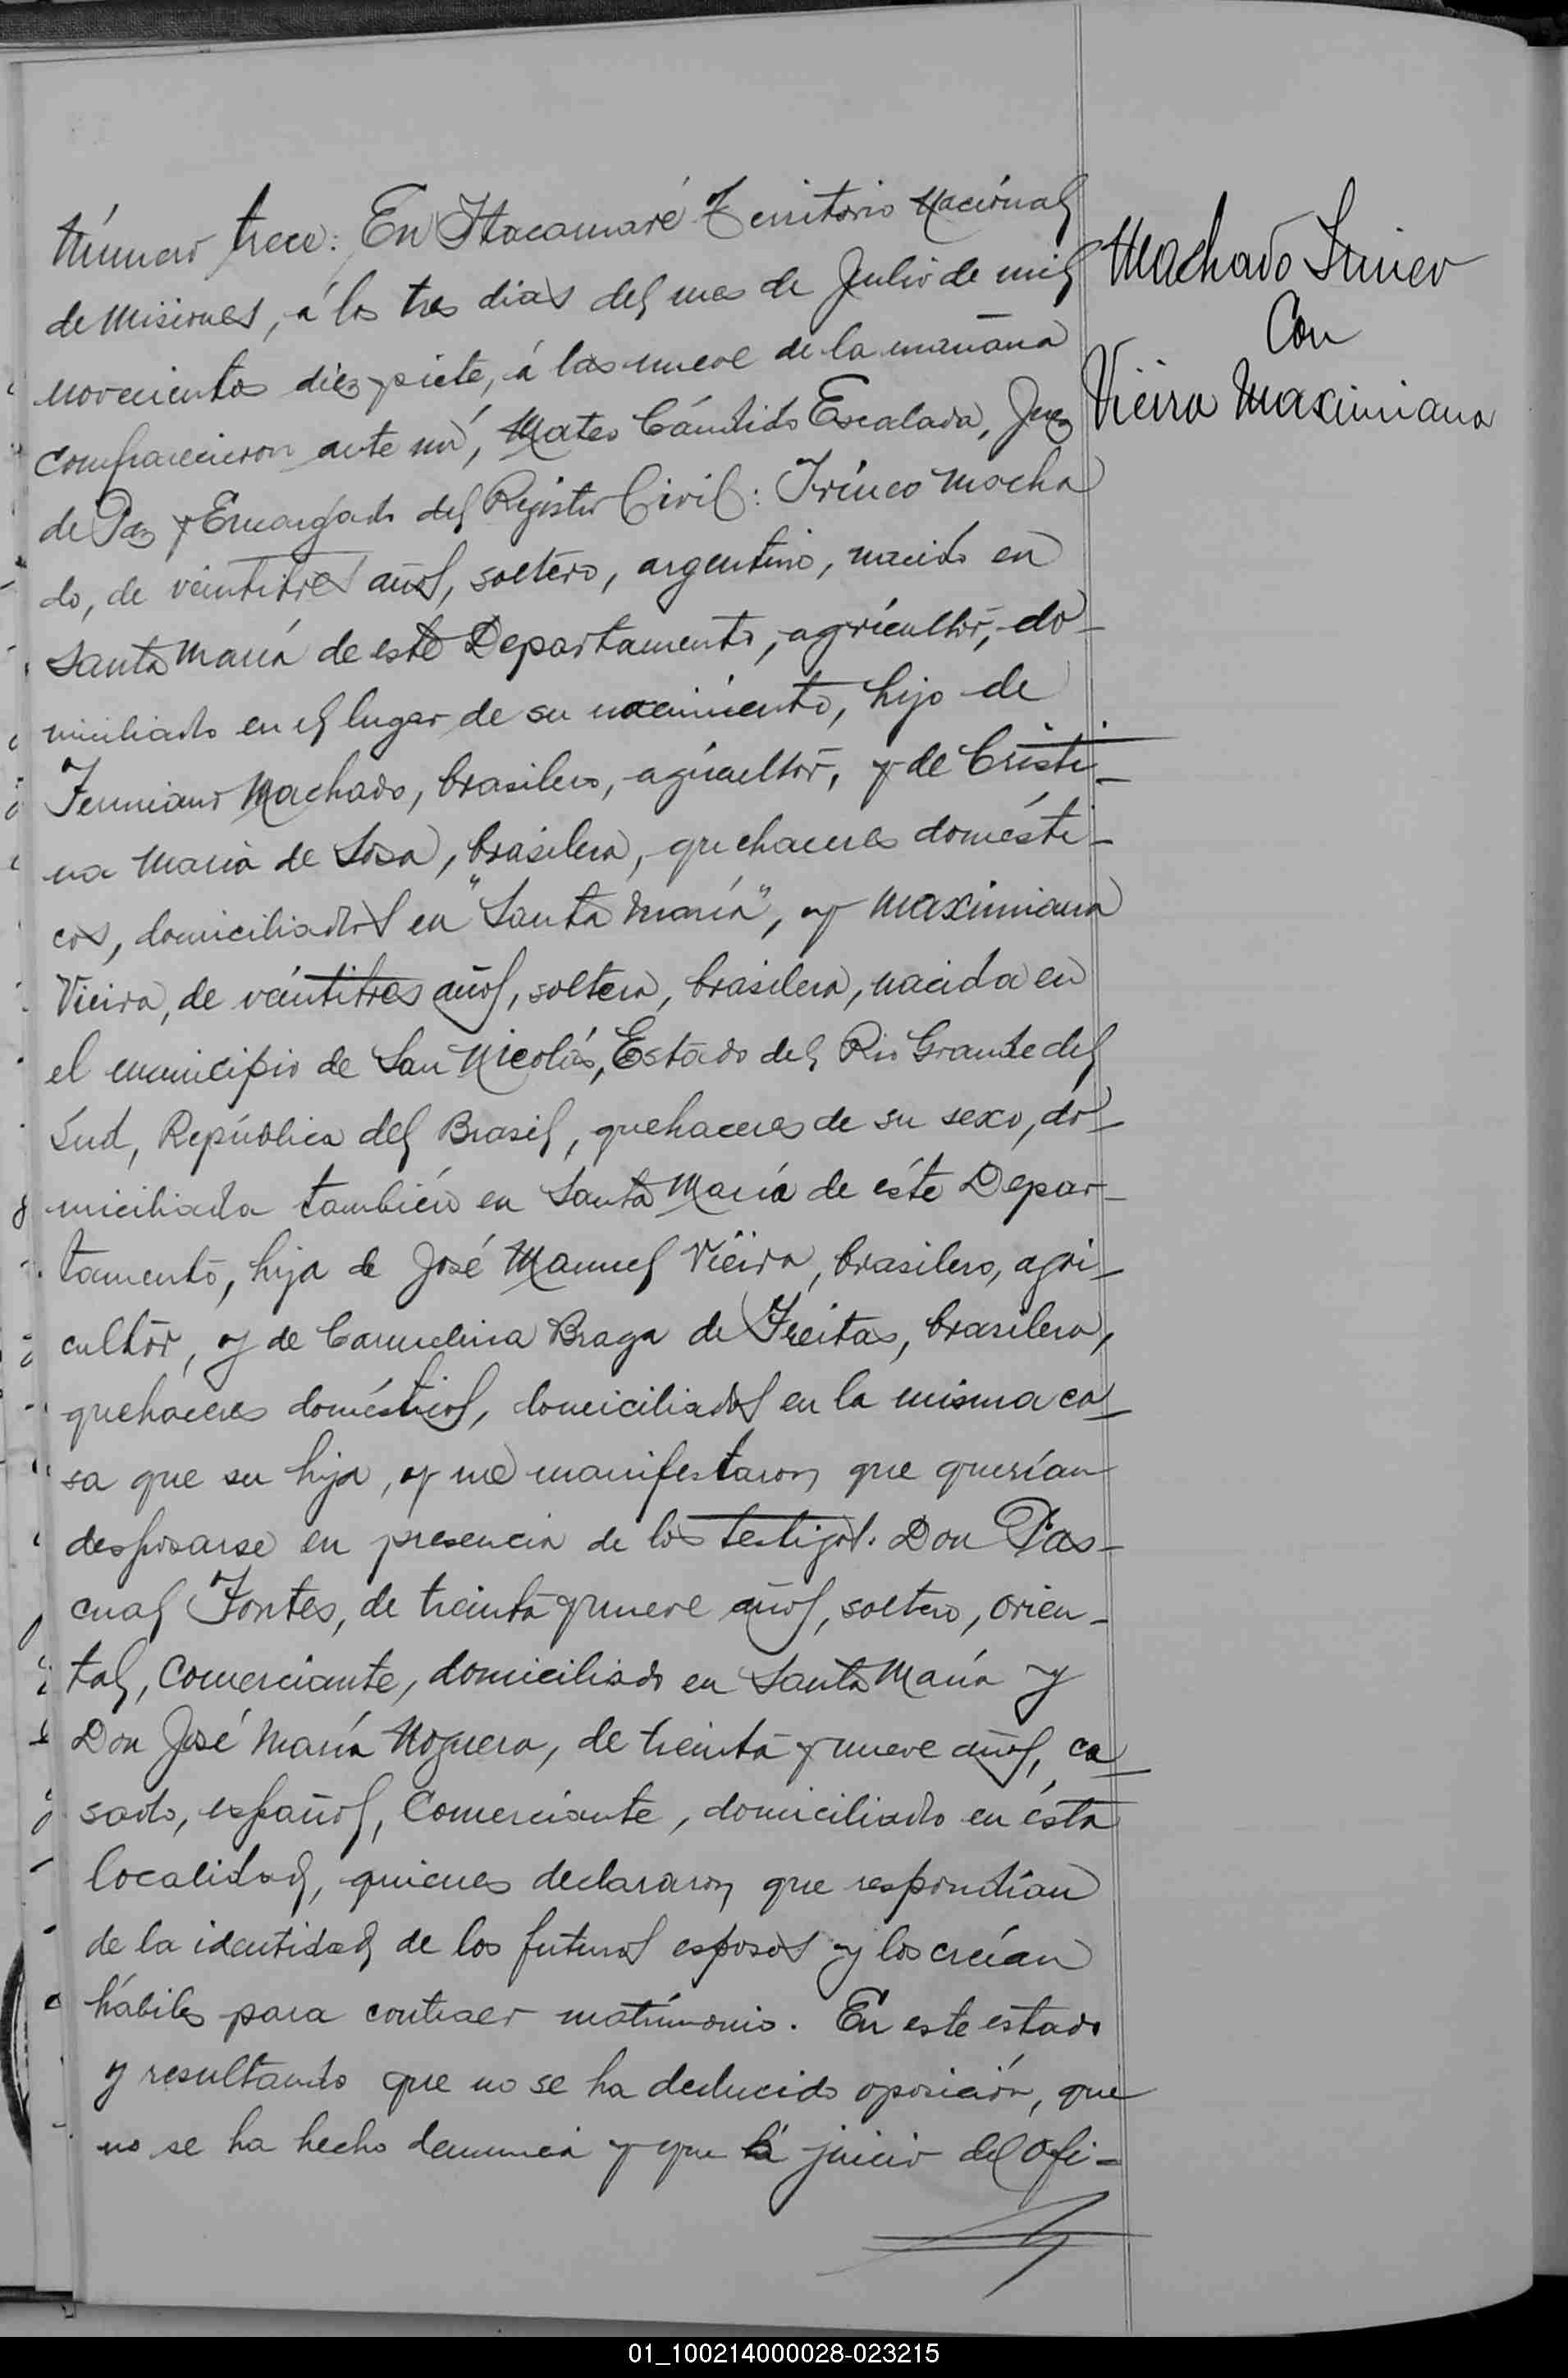 Número trece: En Itacaruaré Territorio Nacional
de Misiones, á los tres dias del mes de Julio de mil
novecientos diez y siete, á las nueve de la mañana
comparecieron ante mí, Mateo Cándido Escalada, Juez
de Paz y Encargado del Registro Civil: Irineo Macha
do, de veintitres años, soltero, argentino, nacido en
Santa María de este Departamento, agricultor, do-
miciliado en el lugar de su nacimiento, hijo de
Machado, brasilero, agricultor, y de Cristi-
na Maria de Sosa, brasilera, quehaceres domésti-
cos, domiciliados en "Santa María", y Maximiana
Vieira, de veintitres años, soltera, brasilera, nacida en
el municipio de San Nicolás, Estado del Rio Grande del
Sud, República del Brasil, quehaceres de su sexo, do-
miciliada también en Santa María de éste Depar-
tamento, hija de José Manuel Vieira, brasilero, agri-
cultor, y de Carmelina Braga de Freitas, brasilera,
quehaceres domésticos, domiciliados en la misma ca-
sa que su hija, y me manifestaron que querían
desposarse en presencia de los testigos. Don Pas-
cual Fontes, de treinta y nueve años, soltero, orien-
tal, Comerciante, domiciliado en Santa María y
Don José María Noguera, de treinta y nueve años, ca-
sado, español, Comerciante, domiciliado en ésta
localidad, quienes declararon que respondían
de la identidad de los futuros esposos y los creían
hábiles para contraer matrimonio. En este estado
y resultando que no se ha deducido oposición, que
no se ha hecho denuncia y que á juicio del Ofi-
Machado Irineo
Con
Vieira Maximiana
01_100214000028-023215